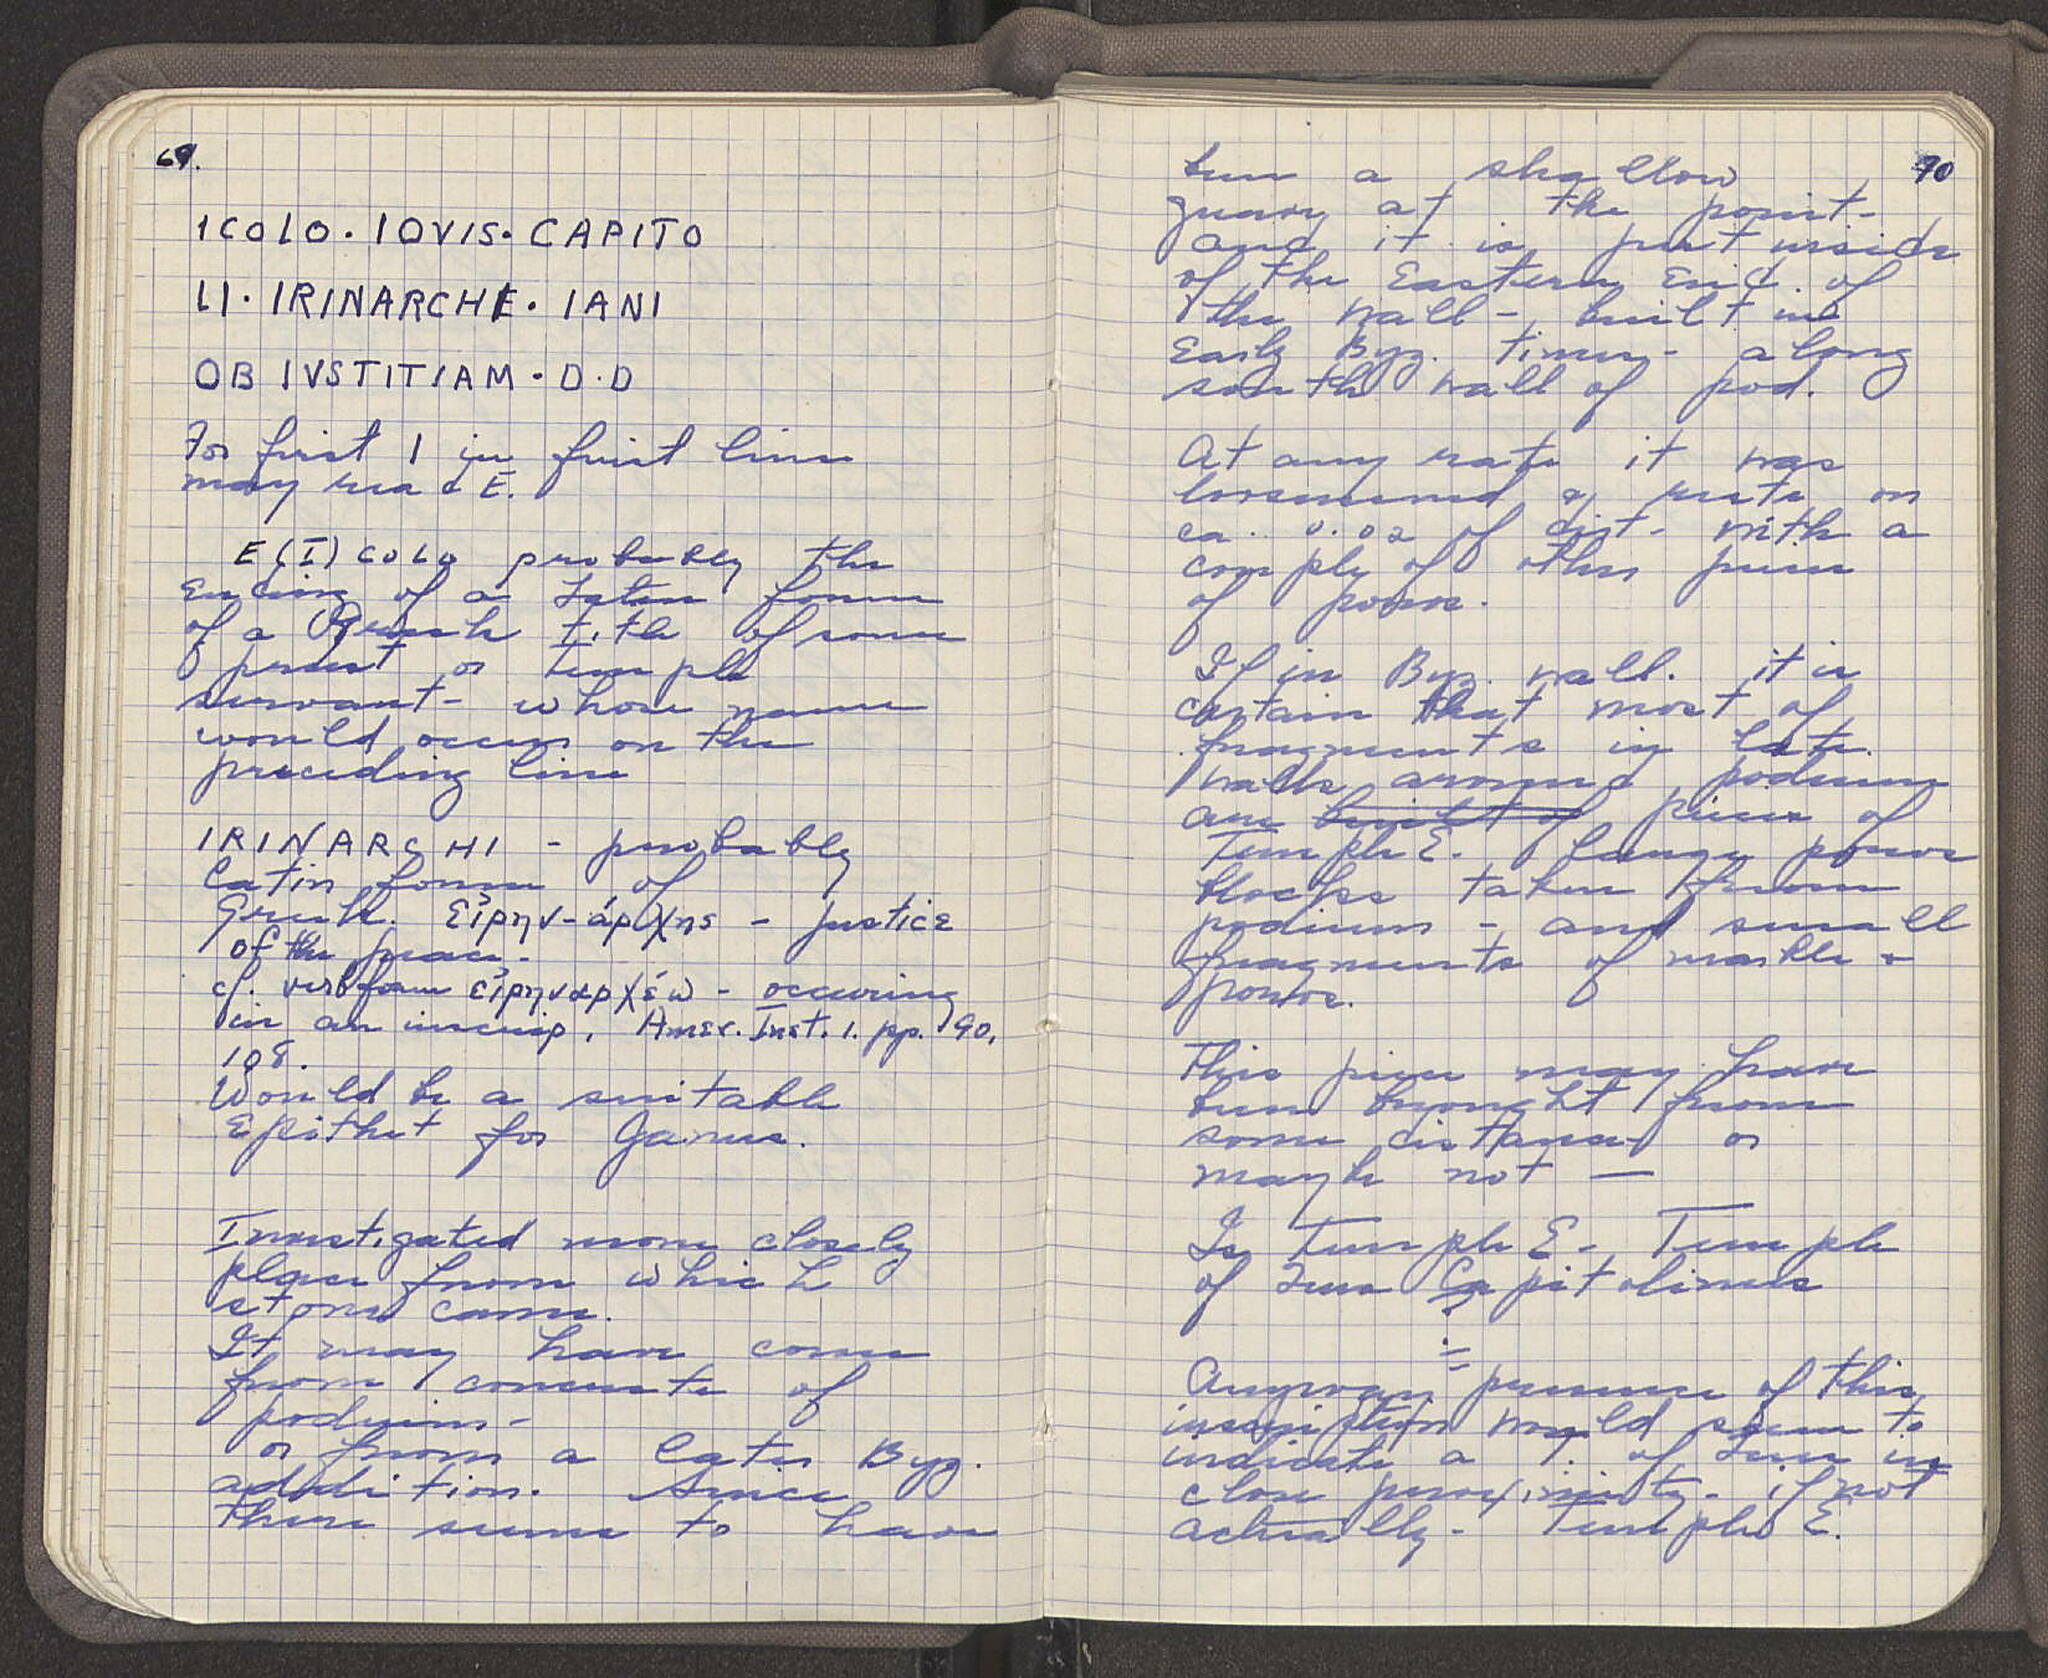 69.
ICOLO · IOVIS · CAPITO
LI · IRINARCHE · IANI
OB IVSTITIAM · D · D
For first I in first line
may read E.
E(I)COLO probably the
ending of a Latin form
of a Greek title of some
priest or temple
servant - whose name
would occur on the
preceding line
IRINARCHI - probably
Latin form of
Greek. εἰρην-άρχης - justice
of the peace -
cf. verb form εἰρηναρχέω - occuring
in an inscrip. Amer. Inst. 1. pp. 90,
108.
Would be a suitable
Epithet for Janus.
Investigated more closely
place from which
stone came.
It may have come
from concrete of
podium -
or from a later Byz.
addition. Since
there seems to have
70
been a shallow
quarry at the point -
and it is just inside
of the Eastern End of
the wall - built in
Early Byz. times - along
south wall of pod.
At any rate it was
loosened & rests on
ca. 0.02 of dirt - with a
comply of other pieces
of poros.
If in Byz. wall. it is
certain that most of
fragments in late
walls around podium
are built of pieces of
Temple E. Large poros
blocks taken from
podium - and small
fragments of marble &
poros.
This piece may have
been brought from
some distance - or
maybe not —
Is Temple E - Temple
of Zeus Capitolinus
?
Anyway presence of this
inscription would seem to
indicate a T. of Zeus in
close proximity - if not
actually - Temple E.